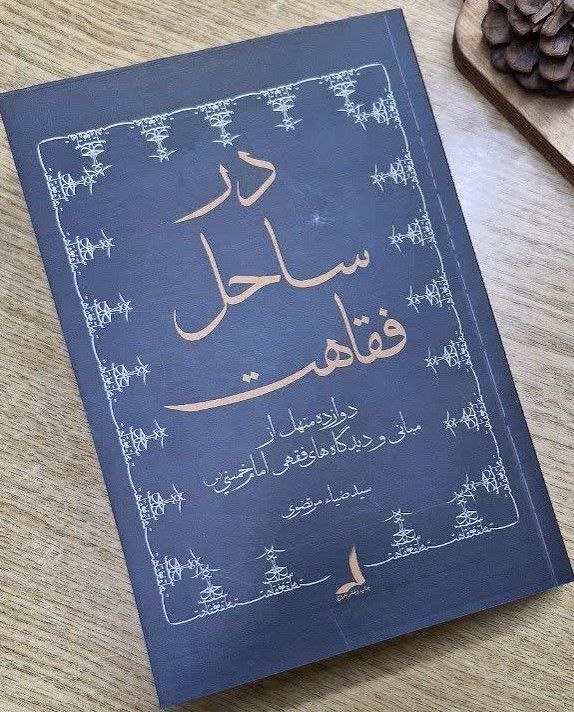 در
ساحل
فقاهت
دوازده منهل از
مبانی و دیدگاه‌های فقهی امام خمینی(س)
سید ضیاء مرتضوی
چاپ و نشر عروج